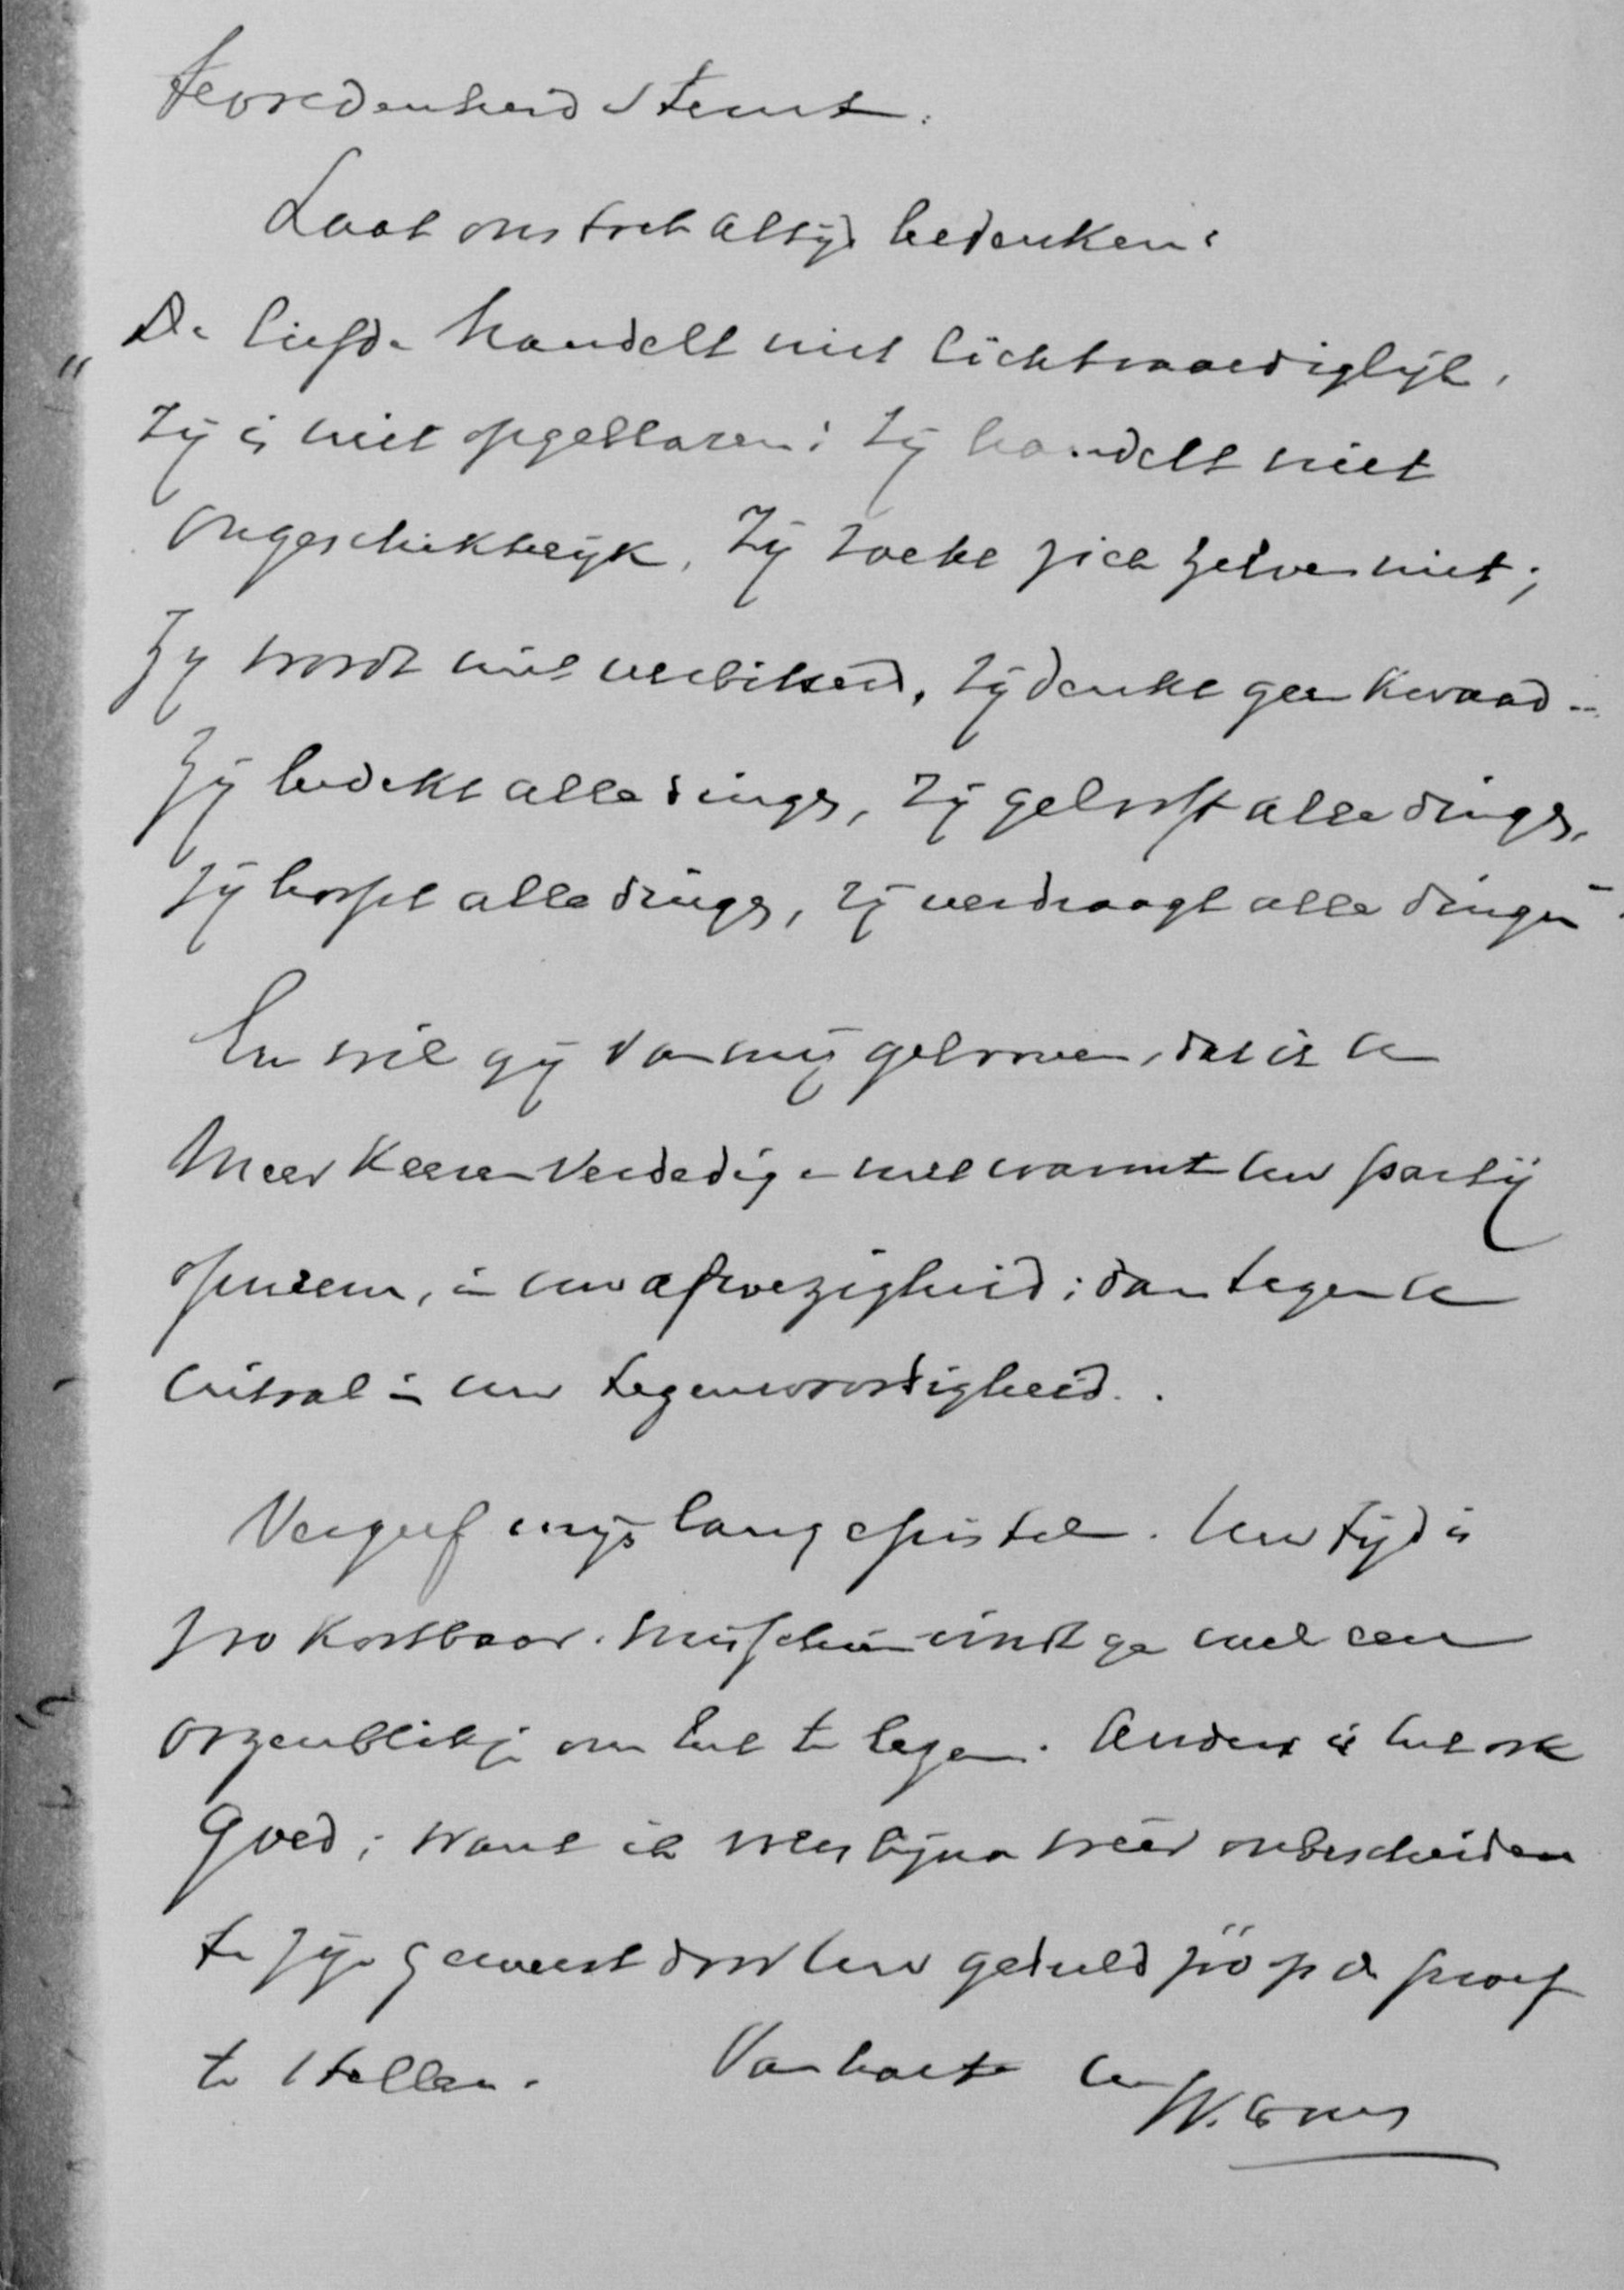 tevredenheid stemt.
Laat ons toch altijd bedenken:
"De liefde handelt niet lichtvaardiglijk,
Zij is niet opgeblazen; Zij handelt niet
ongeschiktelijk, Zij zoekt zich zelve niet;
Zij wordt niet verbitterd, zij denkt geen kwaad...
Zij bedekt alle dingen, zij gelooft alle dingen,
Zij hoopt alle dingen, zij verdraagt alle dingen".
En wil gij van mij gelooven, dat ik u
meer keeren verdedig en met warmte uw partij
opneem, in uw afwezigheid; dan tegen u
uitval in uw tegenwoordigheid.
Vergeef mijn lang epistel. Uw tijd is
zoo kostbaar. Misschien vindt ge wel een
oogenblikje om het te lezen. Anders is het ook
goed; want ik vrees bijna weer onbescheiden
te zijn geweest door uw geduld zóó op de proef
te stellen. Van harte Uw